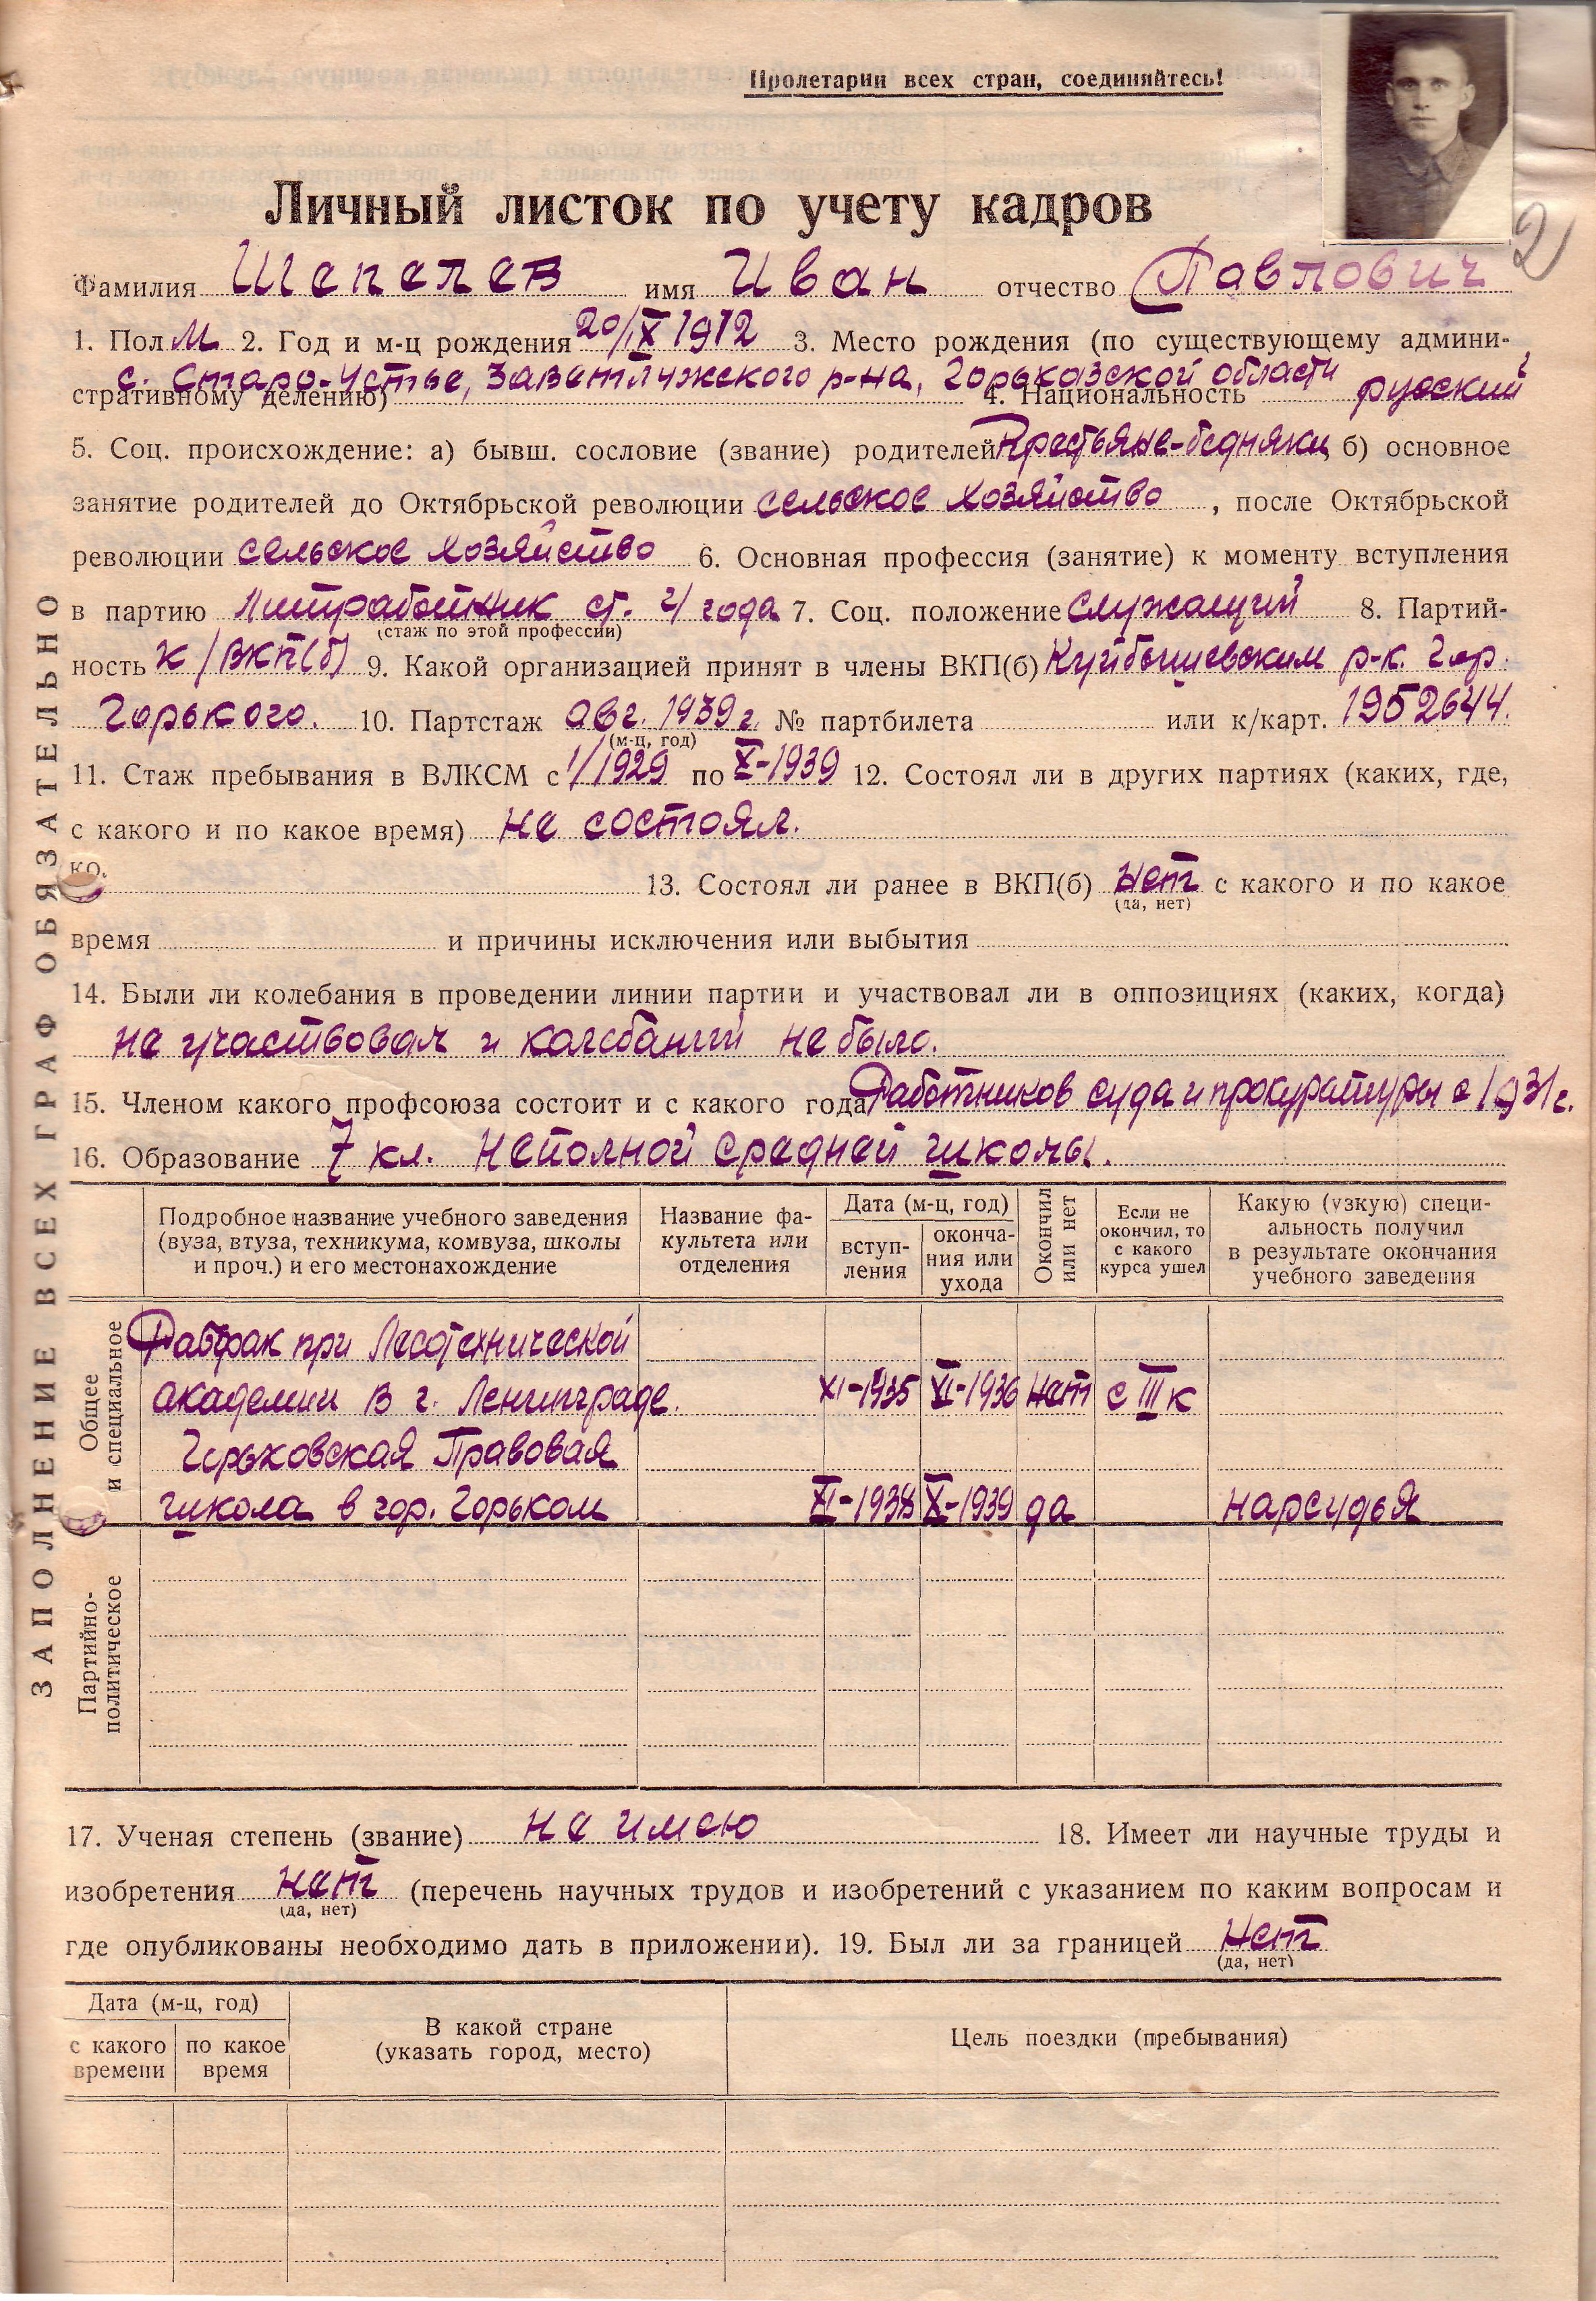 Пролетарии всех стран, соединяйтесь!
2
Личный листок по учету кадров
Фамилия Шепелев имя Иван отчество Павлович
1. Пол М 2. Год и м-ц рождения 20/IX 1912 3. Место рождения (по существующему админи-
стративному делению) с. Старо-Устье, Заветлужского р-на, Горьковской области 4. Национальность русский
5. Соц. происхождение: а) бывш. сословие (звание) родителей Крестьяне-бедняки, б) основное
занятие родителей до Октябрьской революции сельское хозяйство, после Октябрьской
революции сельское хозяйство 6. Основная профессия (занятие) к моменту вступления
в партию Литработник ст. 4 года 7. Соц. положение служащий 8. Партий-
(стаж по этой профессии)
ность к/ВКП(б) 9. Какой организацией принят в члены ВКП(б) Куйбышевским р-к. гор.
Горького. 10. Партстаж авг. 1939 г. № партбилета или к/карт. 1952644.
(м-ц, год)
11. Стаж пребывания в ВЛКСМ с 1/1929 по X-1939 12. Состоял ли в других партиях (каких, где,
с какого и по какое время) не состоял.
ко.
13. Состоял ли ранее в ВКП(б) нет с какого и по какое
(да, нет)
время и причины исключения или выбытия
14. Были ли колебания в проведении линии партии и участвовал ли в оппозициях (каких, когда)
не участвовал и колебаний не было.
15. Членом какого профсоюза состоит и с какого года Работников суда и прокуратуры с 1931 г.
16. Образование 7 кл. Неполной средней школы.
ЗАПОЛНЕНИЕ ВСЕХ ГРАФ ОБЯЗАТЕЛЬНО
Подробное название учебного заведения (вуза, втуза, техникума, комвуза, школы и проч.) и его местонахождение
Название факультета или отделения
Дата (м-ц, год)
вступ-
ления
оконча-
ния или
ухода
Окончил
или нет
Если не
окончил, то
с какого
курса ушел
Какую (узкую) специ-
альность получил
в результате окончания
учебного заведения
Общее
и специальное
Рабфак при Лесотехнической
академии в г. Ленинграде. XI-1935 VI-1936 нет с III к
Горьковская Правовая
школа в гор. Горьком XI-1938 X-1939 да нарсудья
Партийно-
политическое
17. Ученая степень (звание) не имею 18. Имеет ли научные труды и
изобретения нет (перечень научных трудов и изобретений с указанием по каким вопросам и
(да, нет)
где опубликованы необходимо дать в приложении). 19. Был ли за границей нет
(да, нет)
Дата (м-ц, год)
с какого
времени
по какое
время
В какой стране
(указать город, место)
Цель поездки (пребывания)